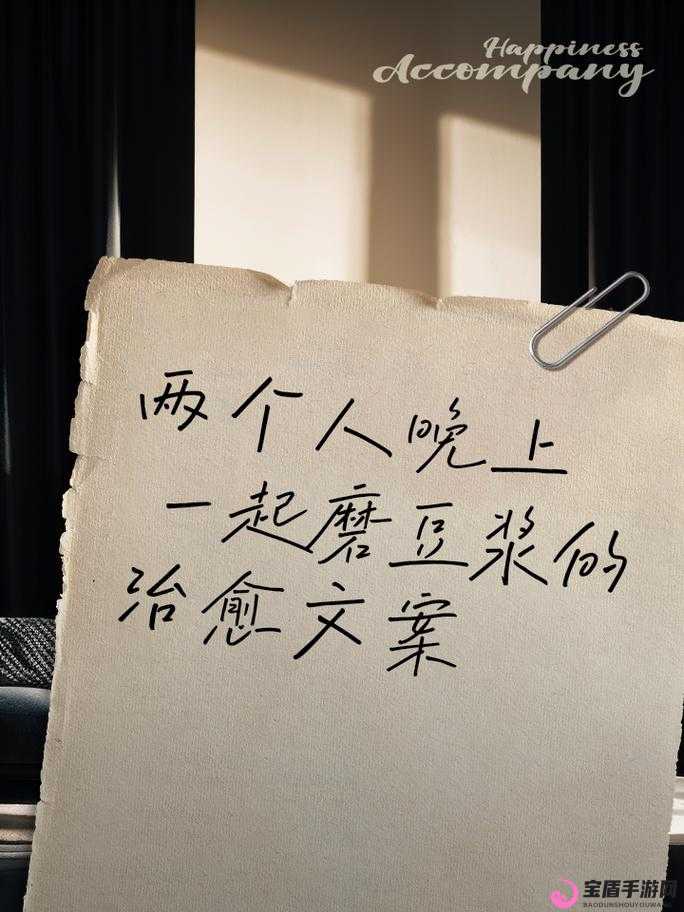 Happiness
Accompany
两个人晚上
一起磨豆浆的
治愈文案
宝盾手游网
BAODUNSHOUYOUWANG